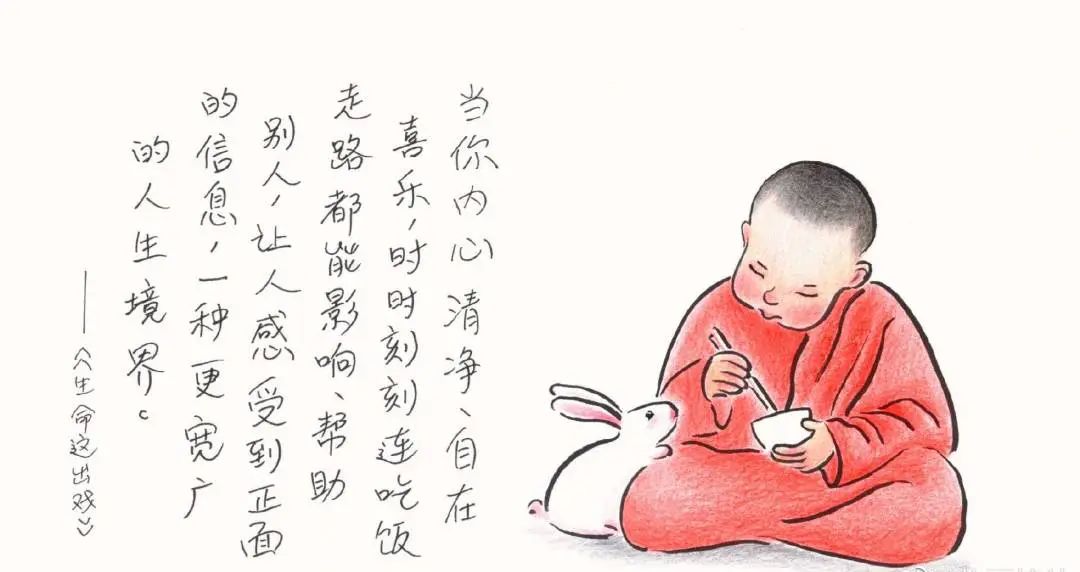 当你内心清净、自在
喜乐，时时刻刻连吃饭
走路都能影响、帮助
别人，让人感受到正面
的信息，一种更宽广
的人生境界。
——《生命这出戏》